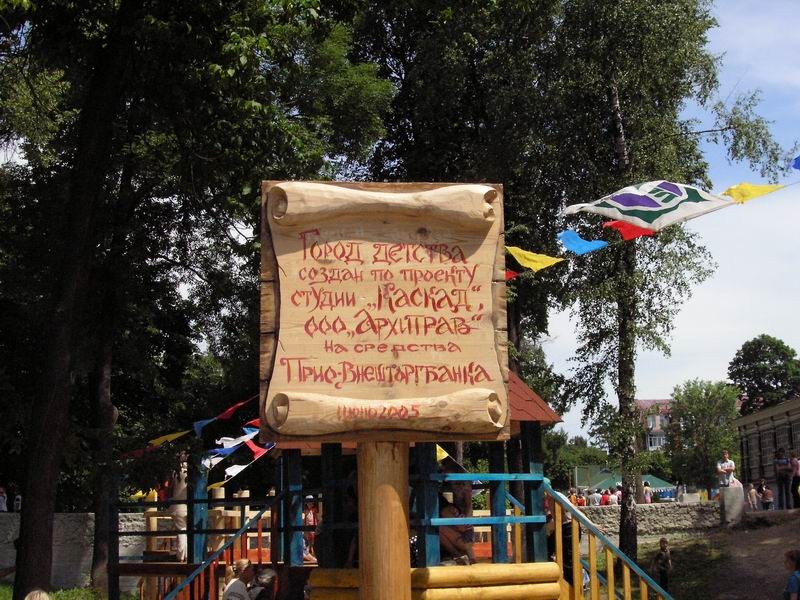 Город детства
создан по проекту
студии „Каскад“,
ООО„Архитрав“
на средства
Прио-Внешторгбанка
июнь 2005